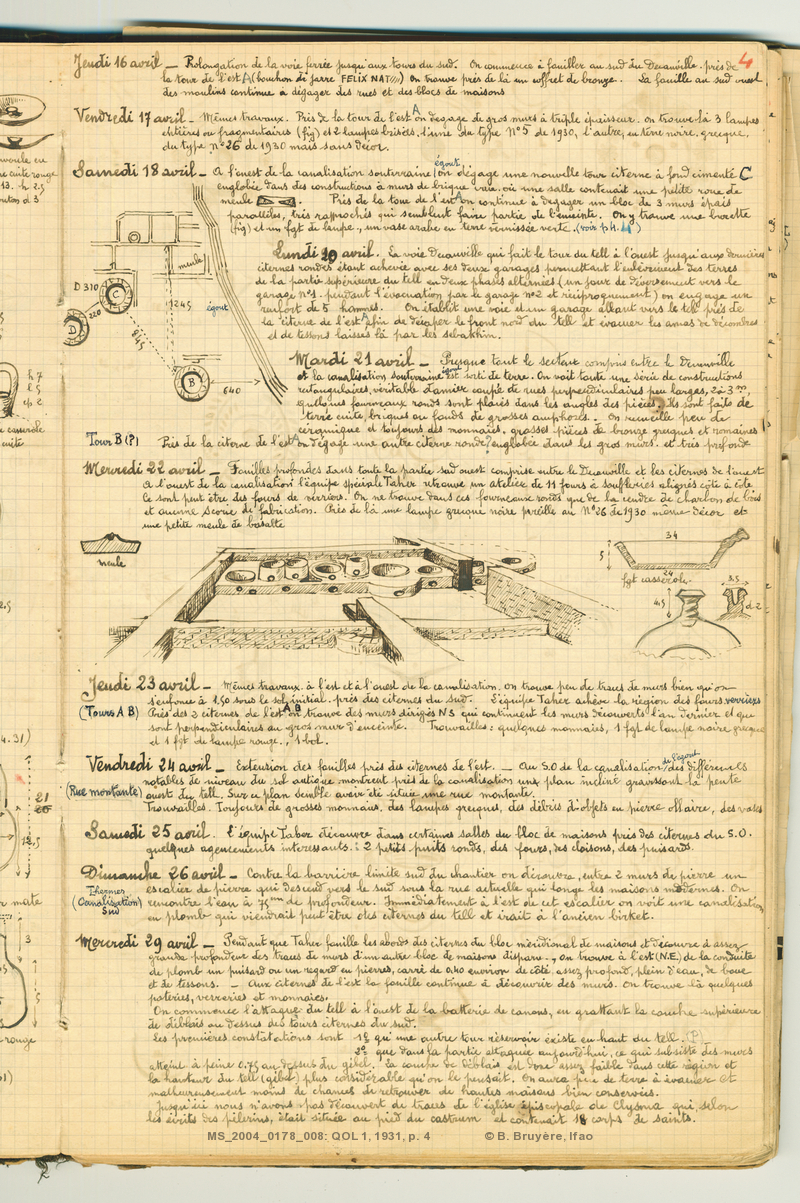 4
Jeudi 16 avril — Prolongation de la voie ferrée jusqu'aux tours du sud. On commence à fouiller au sud du Decauville. près de
la tour de l'est A (bouchon de jarre FELIX NAT) On trouve près de là un coffret de bronze. La fouille au sud ouest
des moulins continue à dégager des rues et des blocs de maisons
Vendredi 17 avril — Mêmes travaux. Près de la tour de l'est A on dégage de gros murs à triple épaisseur. On trouve là 3 lampes
entières ou fragmentaires (fig) et 2 lampes brisées, l'une du type N°5 de 1930, l'autre, en terre noire, grecque,
du type n°26 de 1930 mais sans décor.
Samedi 18 avril — A l'ouest de la canalisation souterraine (égout) on dégage une nouvelle tour citerne à fond cimenté C
englobée dans des constructions à murs de brique crue, où une salle contenait une petite roue de
meule. Près de la tour de l'est A on continue à dégager un bloc de 3 murs épais
parallèles, très rapprochés qui semblent faire partie de l'enceinte. On y trouve une buvette
(fig) et un fgt de lampe., un vase arabe en terre vernissée verte. (voir p.h. )
Lundi 20 avril. La voie Decauville qui fait le tour du tell à l'ouest jusqu'aux dernières
citernes rondes étant achevée avec ses deux garages permettant l'enlèvement des terres
de la partie supérieure du tell en deux phases alternées (un jour de déversement vers le
garage n°1. pendant l'évacuation par le garage n°2 et réciproquement) on engage un
renfort de 5 hommes. On établit une voie et un garage allant vers le tell près de
la citerne de l'est A afin de décaper le front nord du tell et évacuer les amas de décombres
et de tessons laissés là par les sebakhin.
meule
D 310
C
220
D
1245
égout
645
B
640
Mardi 21 avril — Presque tout le secteur compris entre le Decauville
et la canalisation souterraine égout est sorti de terre. On voit toute une série de constructions
rectangulaires, véritable damier coupé de rues perpendiculaires peu larges, 2 à 3 m,
quelques fourneaux ronds sont placés dans les angles des pièces. Ils sont faits de
terre cuite, briques ou fonds de grosses amphores. On recueille peu de
céramique et toujours des monnaies, grosses pièces de bronze grecques et romaines
Tour B (P) Près de la citerne de l'est A on dégage une autre citerne ronde englobée dans les gros murs. et très profonde
Mercredi 22 avril — Fouilles profondes dans toute la partie sud ouest comprise entre le Decauville et les citernes de l'ouest
A l'ouest de la canalisation l'équipe spéciale Taher retrouve un atelier de 11 fours à souffleries alignés côte à côte
Ce sont peut être des fours de verriers. On ne trouve dans ces fourneaux ronds que de la cendre de charbon de bois
et aucune scorie de fabrication. Près de là une lampe grecque noire pareille au N°26 de 1930 même décor et
une petite meule de basalte
meule
34
5
24
fgt casserole.
4,5
3,5
d 2
Jeudi 23 avril — Mêmes travaux à l'est et à l'ouest de la canalisation. On trouve peu de traces de murs bien qu'on
s'enfonce à 1,50 sous le sol initial. près des citernes du sud. L'équipe Taher achève la région des fours verriers
(Tours A B) Près des 2 citernes de l'est A B on trouve des murs dirigés NS qui continuent les murs découverts l'an dernier et qui
sont perpendiculaires au gros mur d'enceinte. Trouvailles: quelques monnaies, 1 fgt de lampe noire grecque
et 1 fgt de lampe rouge., 1 bol.
Vendredi 24 avril — Extension des fouilles près des citernes de l'est. — Au S.O de la canalisation (de l'égout) des différences
notables de niveau du sol antique montrent près de la canalisation un plan incliné gravissant la pente
(Rue montante) ouest du tell. Sur ce plan semble avoir été située une rue montante.
Trouvailles. Toujours de grosses monnaies, des lampes grecques, des débris d'objets en pierre ollaire, des vases
Samedi 25 avril. L'équipe Taher découvre dans certaines salles du bloc de maisons près des citernes du S.O.
quelques agencements intéressants.: 2 petits puits ronds, des fours, des cloisons, des puisards.
Dimanche 26 avril — Contre la barrière limite sud du chantier on découvre, entre 2 murs de pierre un
Thermes escalier de pierre qui descend vers le sud sous la rue actuelle qui longe les maisons modernes. On
(Canalisation) rencontre l'eau à 75 cm de profondeur. Immédiatement à l'est de cet escalier on voit une canalisation
Sud en plomb qui viendrait peut être des citernes du tell et irait à l'ancien birket.
Mercredi 29 avril — Pendant que Taher fouille les abords des citernes du bloc méridional de maisons et découvre à assez
grande profondeur des traces de murs d'un autre bloc de maisons disparu., on trouve à l'est (N.E.) de la conduite
de plomb un puisard ou un regard en pierres, carré de 0,40 environ de côté, assez profond, plein d'eau, de boue
et de tessons. — Aux citernes de l'est la fouille continue à découvrir des murs. On trouve là quelques
poteries, verreries et monnaies.
On commence l'attaque du tell à l'ouest de la batterie de canons, en grattant la couche supérieure
de déblais au dessus des tours citernes du sud.
Les premières constatations sont 1° qu'une autre tour réservoir existe en haut du tell. (P)
2° que dans la partie attaquée aujourd'hui, ce qui subsiste des murs
atteint à peine 0.75 au dessus du gebel. La couche de déblais est donc assez faible dans cette région et
la hauteur du tell (gebel) plus considérable qu'on le pensait. On aura peu de terre à évacuer et
malheureusement moins de chances de retrouver de hautes maisons bien conservées.
Jusqu'ici nous n'avons pas découvert de traces de l'église épiscopale de Clysma qui, selon
les écrits des pèlerins, était située au pied du castrum et contenait 18 corps de saints.
MS_2004_0178_008: QOL 1, 1931, p. 4 © B. Bruyère, Ifao